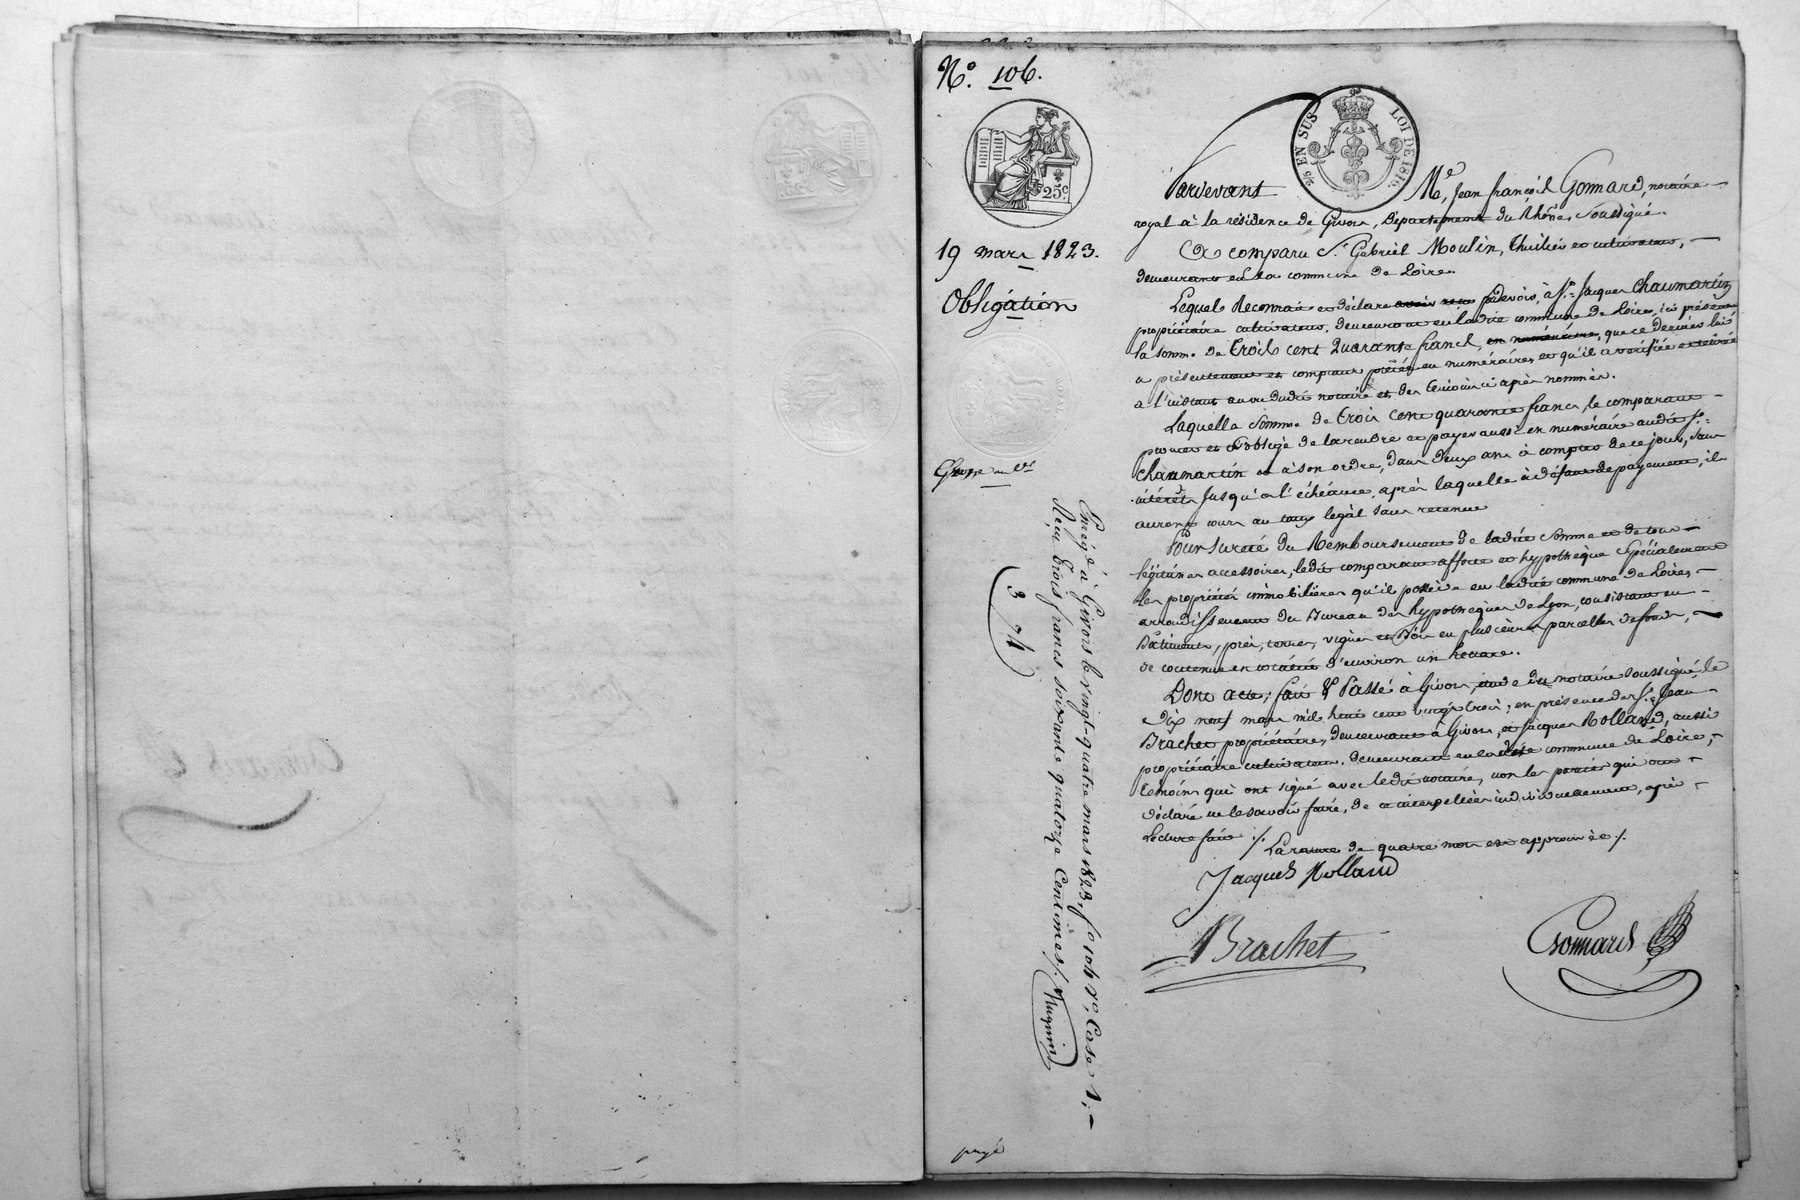 N.° 106.
25 c
5/2 EN SUS
LOI DE 1816.
19 mars 1823.
Obligation
Grosse au
Pardevant Me. Jean françois Gonnard, notaire
royal à la résidence de Givors, Département du Rhône, Soussigné.
A comparu Sr. Gabriel Moulin, thuilier et cultivateur,
demeurant en la commune de Loire.
Lequel Reconnait et déclare avoir reçu devoir, à Sr. Jacques Chaumartin
propriétaire cultivateur, demeurant en ladite commune de Loire, ici présent
la somme de trois cent Quarante francs, en numéraire, que ce dernier lui
a présentement et comptant prêtés en numéraire, et qu'il a vérifiée et retirée
à l'instant au vu dudit notaire et des témoins ci après nommés.
Laquelle Somme de trois cent quarante francs, le comparant
promet et s'oblige de la rendre et payer aussi en numéraire audit Sr.
Chaumartin ou à son ordre, dans deux ans à compter de ce jour, sans
intérêts jusqu'à l'échéance, après laquelle à défaut de payement, ils
auront cours au taux légal sans retenue
Pour Sureté du Remboursement de ladite somme et de tous
légitimes accessoires, ledit comparant affecte et hypothèque Spécialement
les propriétés immobilières qu'il possède en ladite commune de Loire,
arrondissement du Bureau des hypothèques de Lyon, consistant en
Bâtiments, prés, terres, vignes et Bois en plusieurs parcelles de fonds,
de contenue en totalité d'environ un hectare.
Donc acte; fait & Passé à Givors, étude du notaire soussigné, le
dix neuf mars mil huit cent vingt trois; en présence des Srs. Jean
Brachet propriétaire, demeurant à Givors, et Jacques Rolland, aussi
propriétaire cultivateur, demeurant en ladite commune de Loire,
témoins qui ont signé avec ledit notaire, non les parties qui ont
déclaré ne le savoir faire, de ce interpellées individuellement, après
Lecture faite ./.
La rature de quatre mots est approuvée ./.
Jacques Rolland
Brachet
Gonnard
Enregé à Givors le vingt-quatre mars 1823, fo 104 Vo, Case 1.
Reçu trois francs soixante quatorze Centimes ./.
3 74